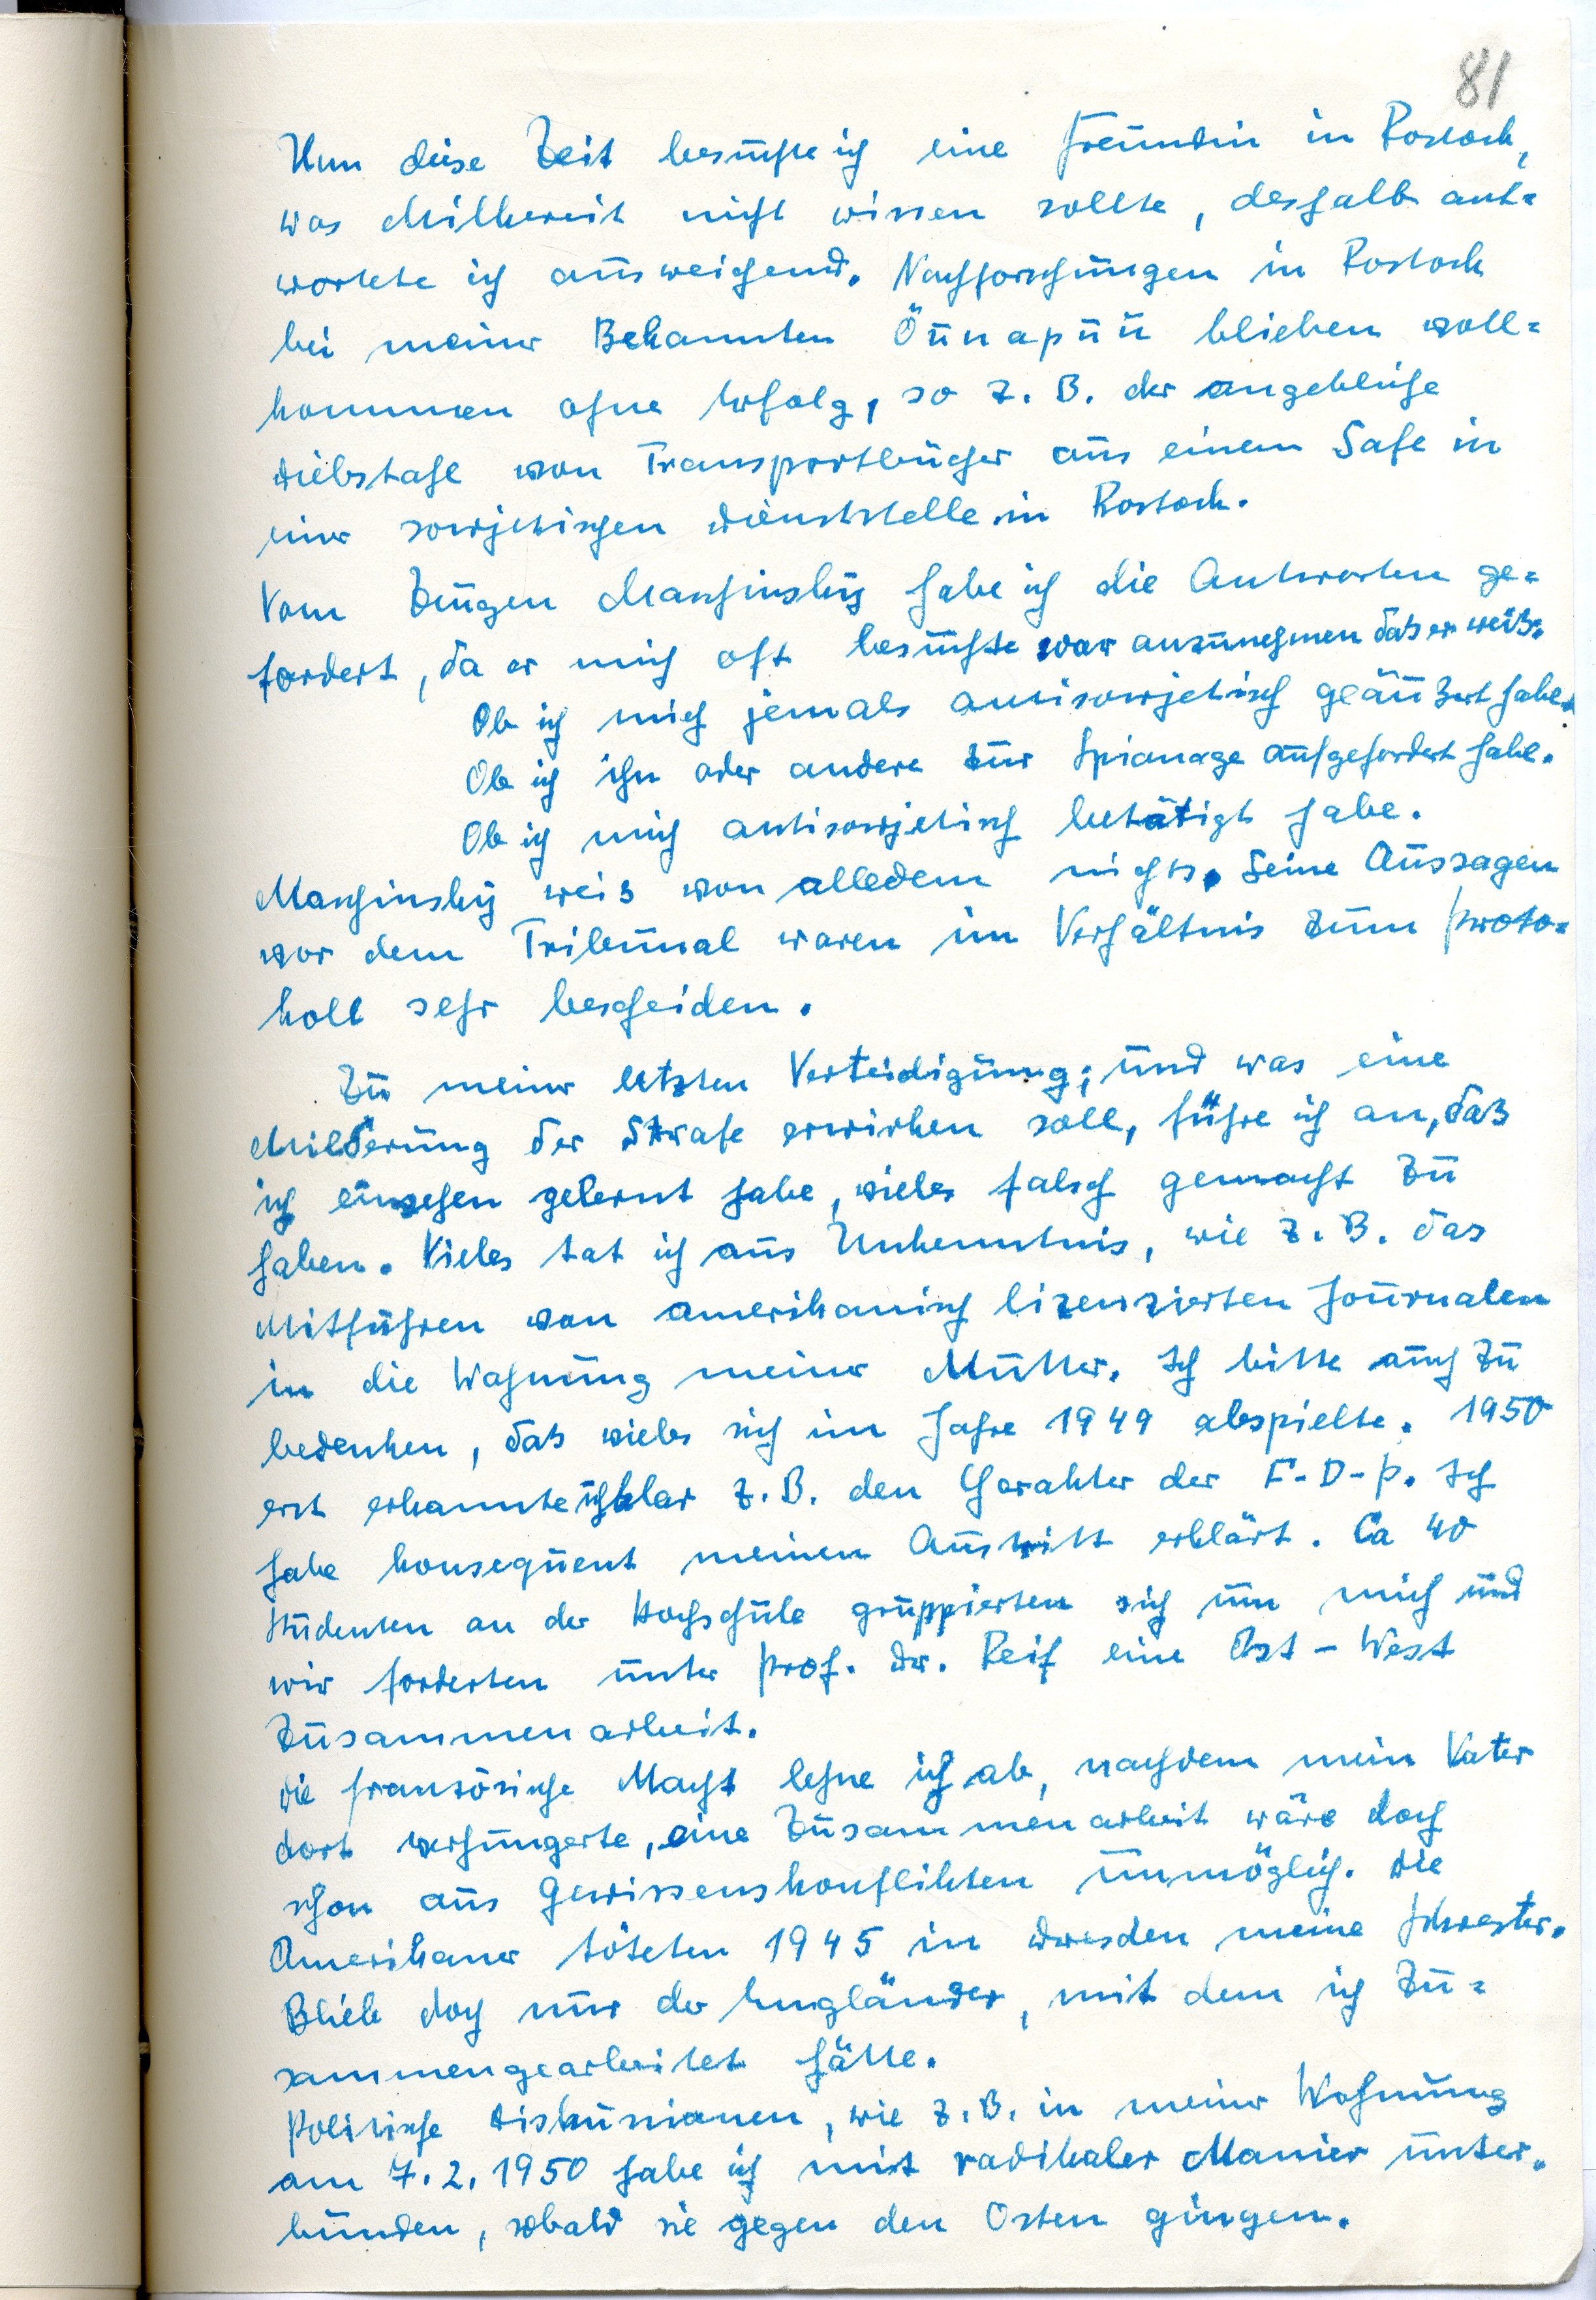 81
Um diese Zeit besuchte ich eine Freundin in Rostock,
was Milbereit nicht wissen sollte, deshalb ant=
wortete ich ausweichend. Nachforschungen in Rostock
bei meiner Bekannten Õunapuu blieben voll=
kommen ohne Erfolg, so z. B. der angebliche
Diebstahl von Transportbücher aus einem Safe in
einer sowjetischen Dienststelle in Rostock.
Vom Zeugen Maschinskij habe ich die Antworten ge=
fordert, da er mich oft besuchte war anzunehmen daß er weiß:
Ob ich mich jemals antisowjetisch geäußert habe.
Ob ich ihn oder andere zur Spionage aufgefordert habe.
Ob ich mich antisowjetisch betätigt habe.
Maschinskij weis von alledem nichts. Seine Aussagen
vor dem Tribunal waren im Verhältnis zum Proto=
koll sehr bescheiden.
Zu meiner letzten Verteidigung; und was eine
Milderung der Strafe erwirken soll, führe ich an, daß
ich einsehen gelernt habe, vieles falsch gemacht zu
haben. Vieles tat ich aus Unkenntnis, wie z. B. das
Mitführen von amerikanisch lizenzierten Journalen
in die Wohnung meiner Mutter. Ich bitte auch zu
bedenken, daß vieles sich im Jahre 1949 abspielte. 1950
erst erkannte ich klar z. B. den Charakter der F-D-P. Ich
habe konsequent meinen Austritt erklärt. Ca 40
Studenten an der Hochschule gruppierten sich um mich und
wir forderten unter Prof. Dr. Reif eine Ost - West
Zusammenarbeit.
Die französische Macht lehne ich ab, nachdem mein Vater
dort verhungerte, eine Zusammenarbeit wäre doch
schon aus Gewissenskonflikten unmöglich. Die
Amerikaner töteten 1945 in Dresden meine Schwester.
Blieb doch nur der Engländer, mit dem ich zu=
sammengearbeitet hätte.
Politische Diskussionen, wie z. B. in meiner Wohnung
am 7. 2. 1950 habe ich mit radikaler Manier unter=
bunden, sobald sie gegen den Osten gingen.